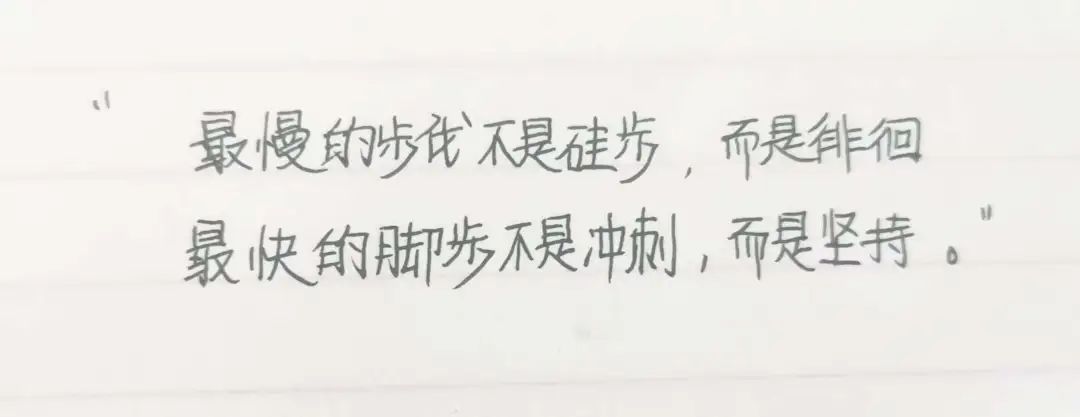 “最慢的步伐不是硅步，而是徘徊
最快的脚步不是冲刺，而是坚持。”